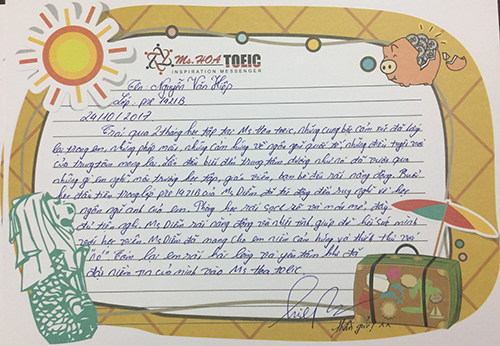 Ms. HOA TOEIC
INSPIRATION MESSENGER
Tên: Nguyễn Văn Hiệp
Lớp: PRE 1421B
24/10/2017
Trải qua 2 tháng học tập tại Ms Hoa toeic, những cung bậc cảm xúc đã
lại trong em, những phép màu, những cảm hứng về ngôn ngữ quốc tế, những điều tuyệt vời
của trung tâm mang lại. Khi đến trung tâm dường như nó đã vượt qua
những gì em nghĩ, môi trường học tập, giáo viên, bạn bè rất năng động. Buổi
học đầu tiên trong lớp PRE 1421B của Ms Diễm đã tác động đến suy nghĩ về học
ngôn ngữ anh của em. Phòng học rất sạch sẽ và mát mẻ, đầy
đủ tiện nghi. Ms Diễm rất năng động và nhiệt tình giúp đỡ hết sức mình
với học viên, Ms Diễm đã mang cho em niềm cảm hứng và thích thú với
"nó". Tóm lại em rất hài lòng và yên tâm khi đã
đặt niềm tin của mình vào Ms Hoa toeic.